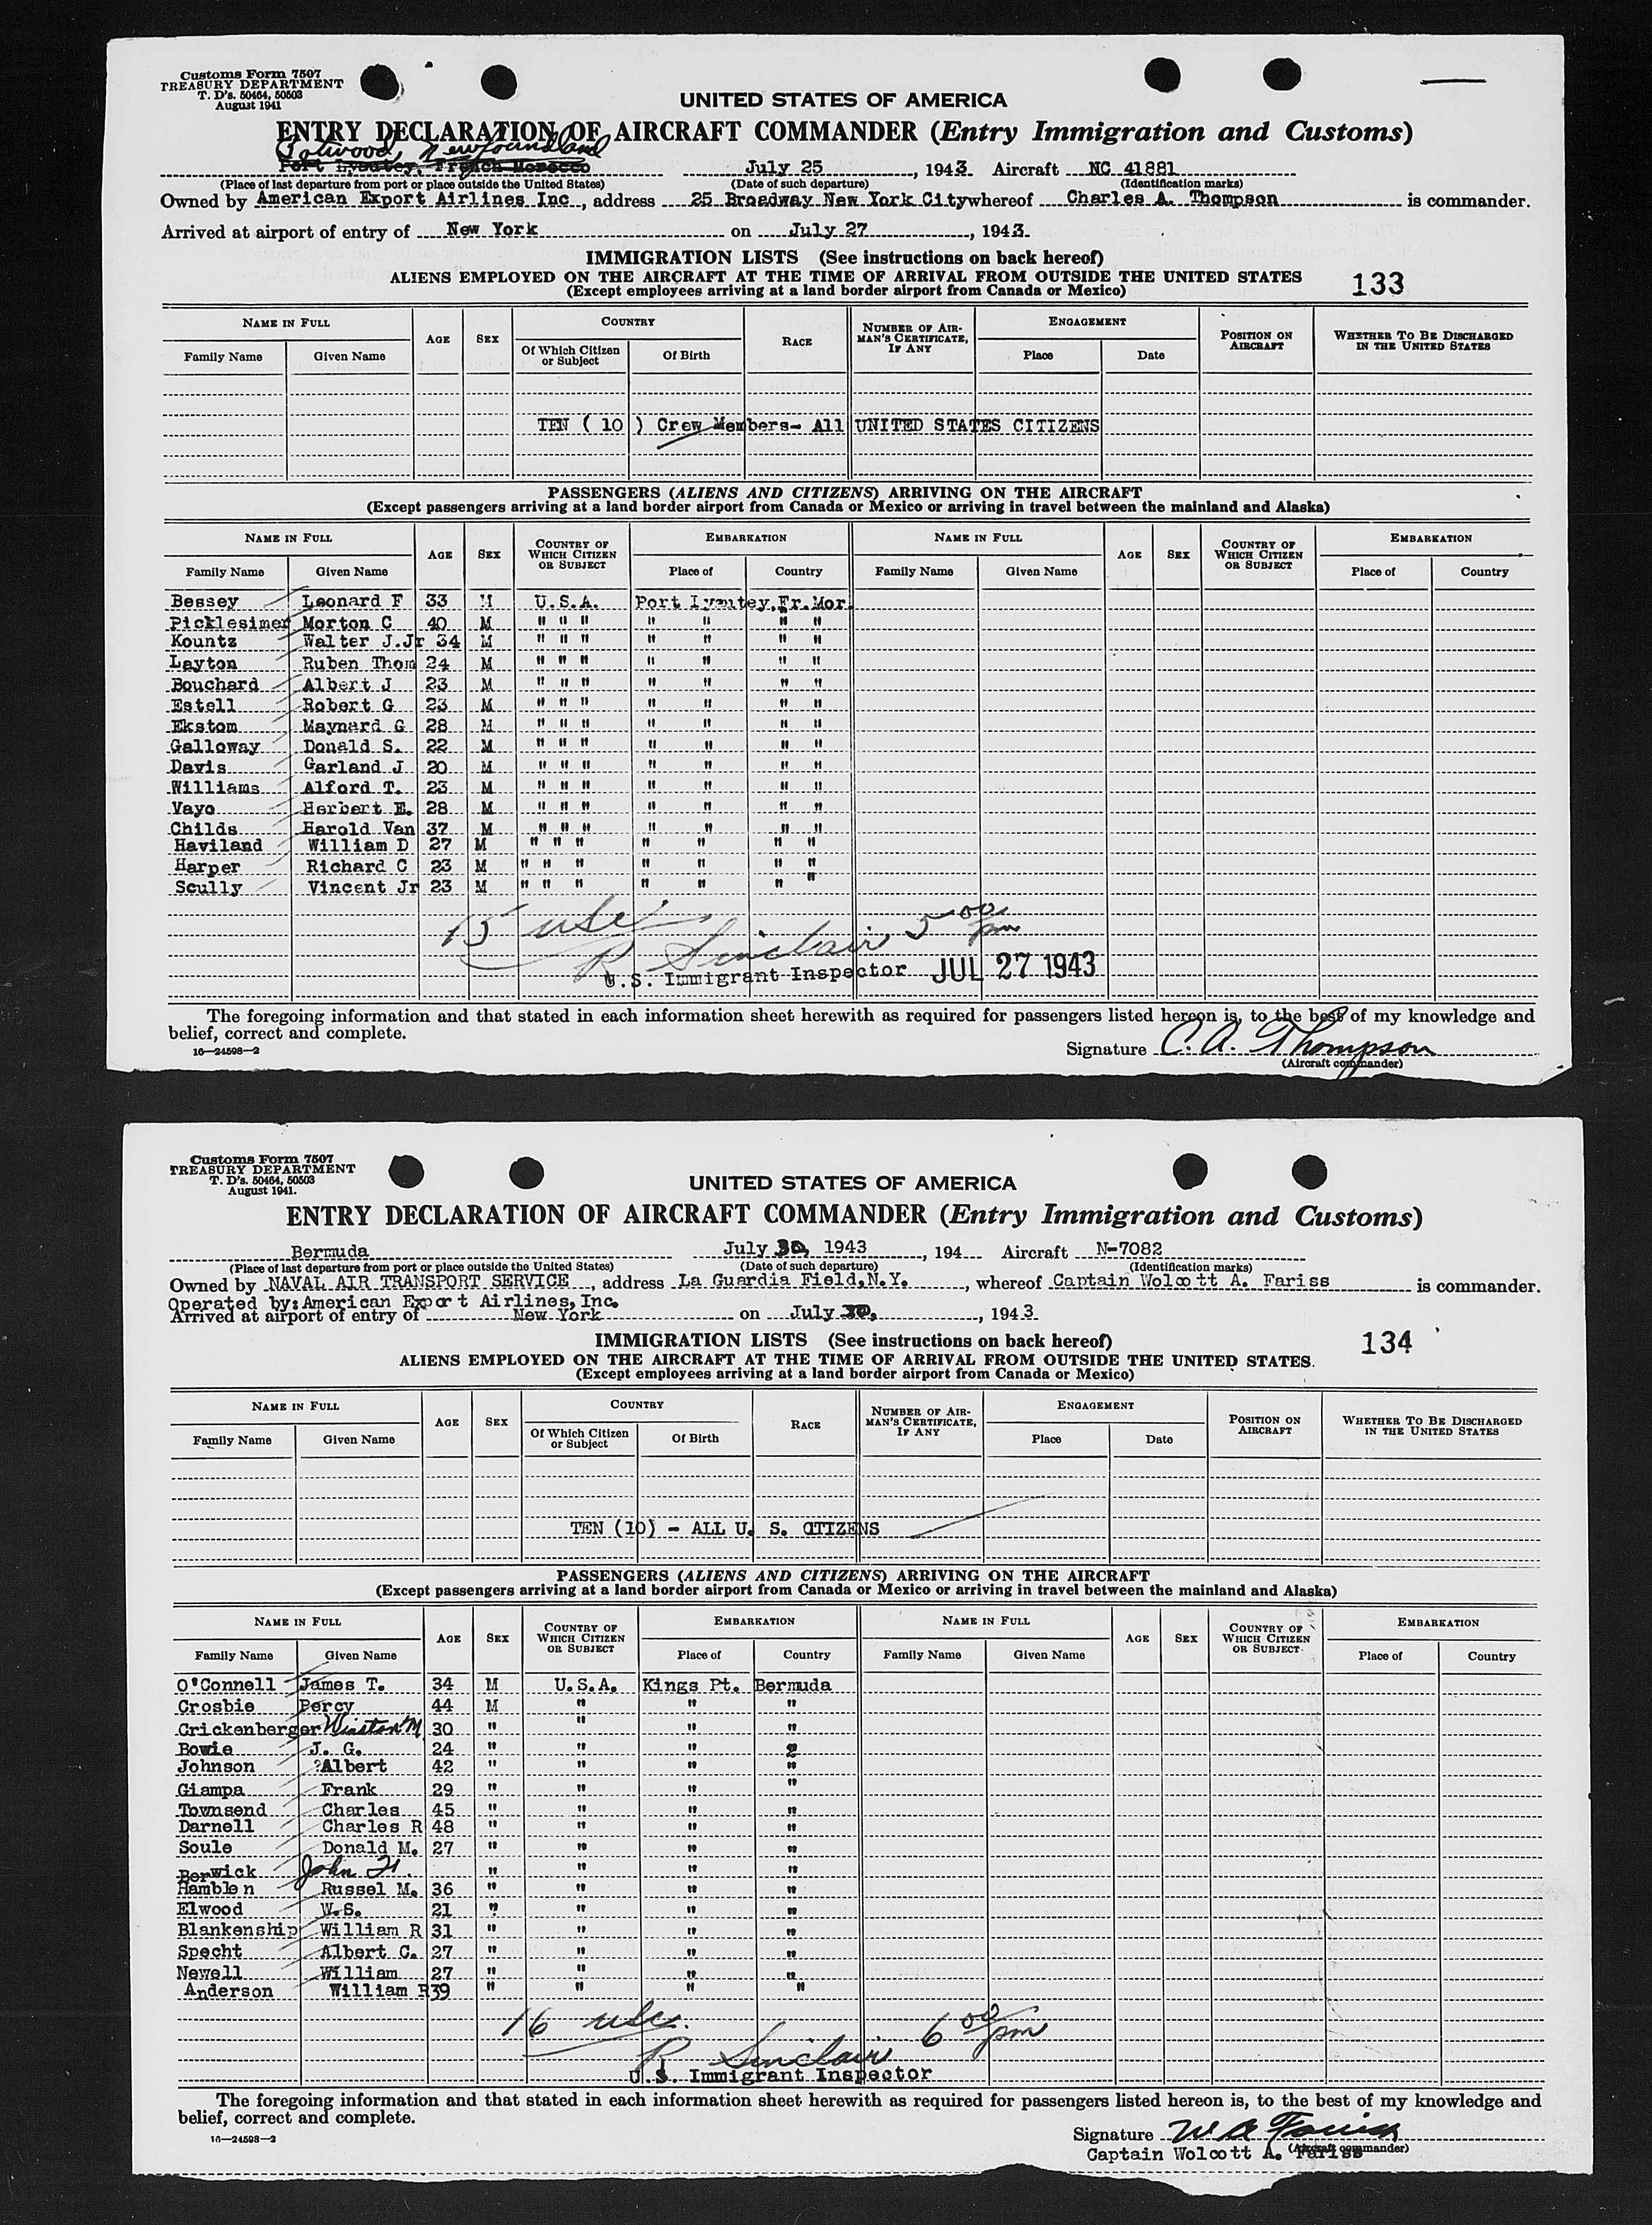 Customs Form 7507
TREASURY DEPARTMENT
T. D's. 50464, 50503
August 1941
UNITED STATES OF AMERICA
ENTRY DECLARATION OF AIRCRAFT COMMANDER (Entry Immigration and Customs)
Botwood, Newfoundland
Port Lyautey, French Morocco July 25, 1943. Aircraft NC 41881
(Place of last departure from port or place outside the United States) (Date of such departure) (Identification marks)
Owned by American Export Airlines Inc, address 25 Broadway New York City whereof Charles A. Thompson is commander.
Arrived at airport of entry of New York on July 27, 1943.
IMMIGRATION LISTS (See instructions on back hereof)
ALIENS EMPLOYED ON THE AIRCRAFT AT THE TIME OF ARRIVAL FROM OUTSIDE THE UNITED STATES 133
(Except employees arriving at a land border airport from Canada or Mexico)
NAME IN FULL AGE SEX COUNTRY RACE NUMBER OF AIRMAN'S CERTIFICATE, IF ANY ENGAGEMENT POSITION ON AIRCRAFT WHETHER TO BE DISCHARGED IN THE UNITED STATES
Family Name Given Name Of Which Citizen or Subject Of Birth Place Date
TEN ( 10 ) Crew Members- All UNITED STATES CITIZENS
PASSENGERS (ALIENS AND CITIZENS) ARRIVING ON THE AIRCRAFT
(Except passengers arriving at a land border airport from Canada or Mexico or arriving in travel between the mainland and Alaska)
NAME IN FULL AGE SEX COUNTRY OF WHICH CITIZEN OR SUBJECT EMBARKATION NAME IN FULL AGE SEX COUNTRY OF WHICH CITIZEN OR SUBJECT EMBARKATION
Family Name Given Name Place of Country Family Name Given Name Place of Country
Bessey Leonard F 33 M U.S.A. Port Lyautey, Fr. Mor.
Picklesimer Morton C 40 M " " " " " " "
Kountz Walter J.Jr 34 M " " " " " " "
Layton Ruben Thom 24 M " " " " " " "
Bouchard Albert J 23 M " " " " " " "
Estell Robert G 23 M " " " " " " "
Ekstom Maynard G 28 M " " " " " " "
Galloway Donald S. 22 M " " " " " " "
Davis Garland J 20 M " " " " " " "
Williams Alford T. 23 M " " " " " " "
Vayo Herbert E. 28 M " " " " " " "
Childs Harold Van 37 M " " " " " " "
Haviland William D 27 M " " " " " " "
Harper Richard C 23 M " " " " " " "
Scully Vincent Jr 23 M " " " " " " "
15 usc 5 00 pm
R Sinclair
U.S. Immigrant Inspector JUL 27 1943
The foregoing information and that stated in each information sheet herewith as required for passengers listed hereon is, to the best of my knowledge and
belief, correct and complete.
16—24598—2
Signature C. A. Thompson
(Aircraft commander)
Customs Form 7507
TREASURY DEPARTMENT
T. D's. 50464, 50503
August 1941.
UNITED STATES OF AMERICA
ENTRY DECLARATION OF AIRCRAFT COMMANDER (Entry Immigration and Customs)
Bermuda July 30, 1943, 194 Aircraft N-7082
(Place of last departure from port or place outside the United States) (Date of such departure) (Identification marks)
Owned by NAVAL AIR TRANSPORT SERVICE, address La Guardia Field, N.Y., whereof Captain Wolcott A. Fariss is commander.
Operated by: American Export Airlines, Inc.
Arrived at airport of entry of New York on July 30, 1943.
IMMIGRATION LISTS (See instructions on back hereof) 134
ALIENS EMPLOYED ON THE AIRCRAFT AT THE TIME OF ARRIVAL FROM OUTSIDE THE UNITED STATES.
(Except employees arriving at a land border airport from Canada or Mexico)
NAME IN FULL AGE SEX COUNTRY RACE NUMBER OF AIRMAN'S CERTIFICATE, IF ANY ENGAGEMENT POSITION ON AIRCRAFT WHETHER TO BE DISCHARGED IN THE UNITED STATES
Family Name Given Name Of Which Citizen or Subject Of Birth Place Date
TEN (10) - ALL U. S. CITIZENS
PASSENGERS (ALIENS AND CITIZENS) ARRIVING ON THE AIRCRAFT
(Except passengers arriving at a land border airport from Canada or Mexico or arriving in travel between the mainland and Alaska)
NAME IN FULL AGE SEX COUNTRY OF WHICH CITIZEN OR SUBJECT EMBARKATION NAME IN FULL AGE SEX COUNTRY OF WHICH CITIZEN OR SUBJECT EMBARKATION
Family Name Given Name Place of Country Family Name Given Name Place of Country
O'Connell James T. 34 M U.S.A. Kings Pt. Bermuda
Crosbie Percy 44 M " " "
Crickenberger Winston M 30 " " " "
Bowie J. G. 24 " " " "
Johnson ?Albert 42 " " " "
Giampa Frank 29 " " " "
Townsend Charles 45 " " " "
Darnell Charles R 48 " " " "
Soule Donald M. 27 " " " "
Berwick John H. " " " "
Hamblen Russel M. 36 " " " "
Elwood W.S. 21 " " " "
Blankenship William R 31 " " " "
Specht Albert C. 27 " " " "
Newell William 27 " " " "
Anderson William R 39 " " " "
16 usc. 6 00 pm
R Sinclair
U.S. Immigrant Inspector
The foregoing information and that stated in each information sheet herewith as required for passengers listed hereon is, to the best of my knowledge and
belief, correct and complete.
16—24598—2
Signature W A Fariss
(Aircraft commander)
Captain Wolcott A. Fariss